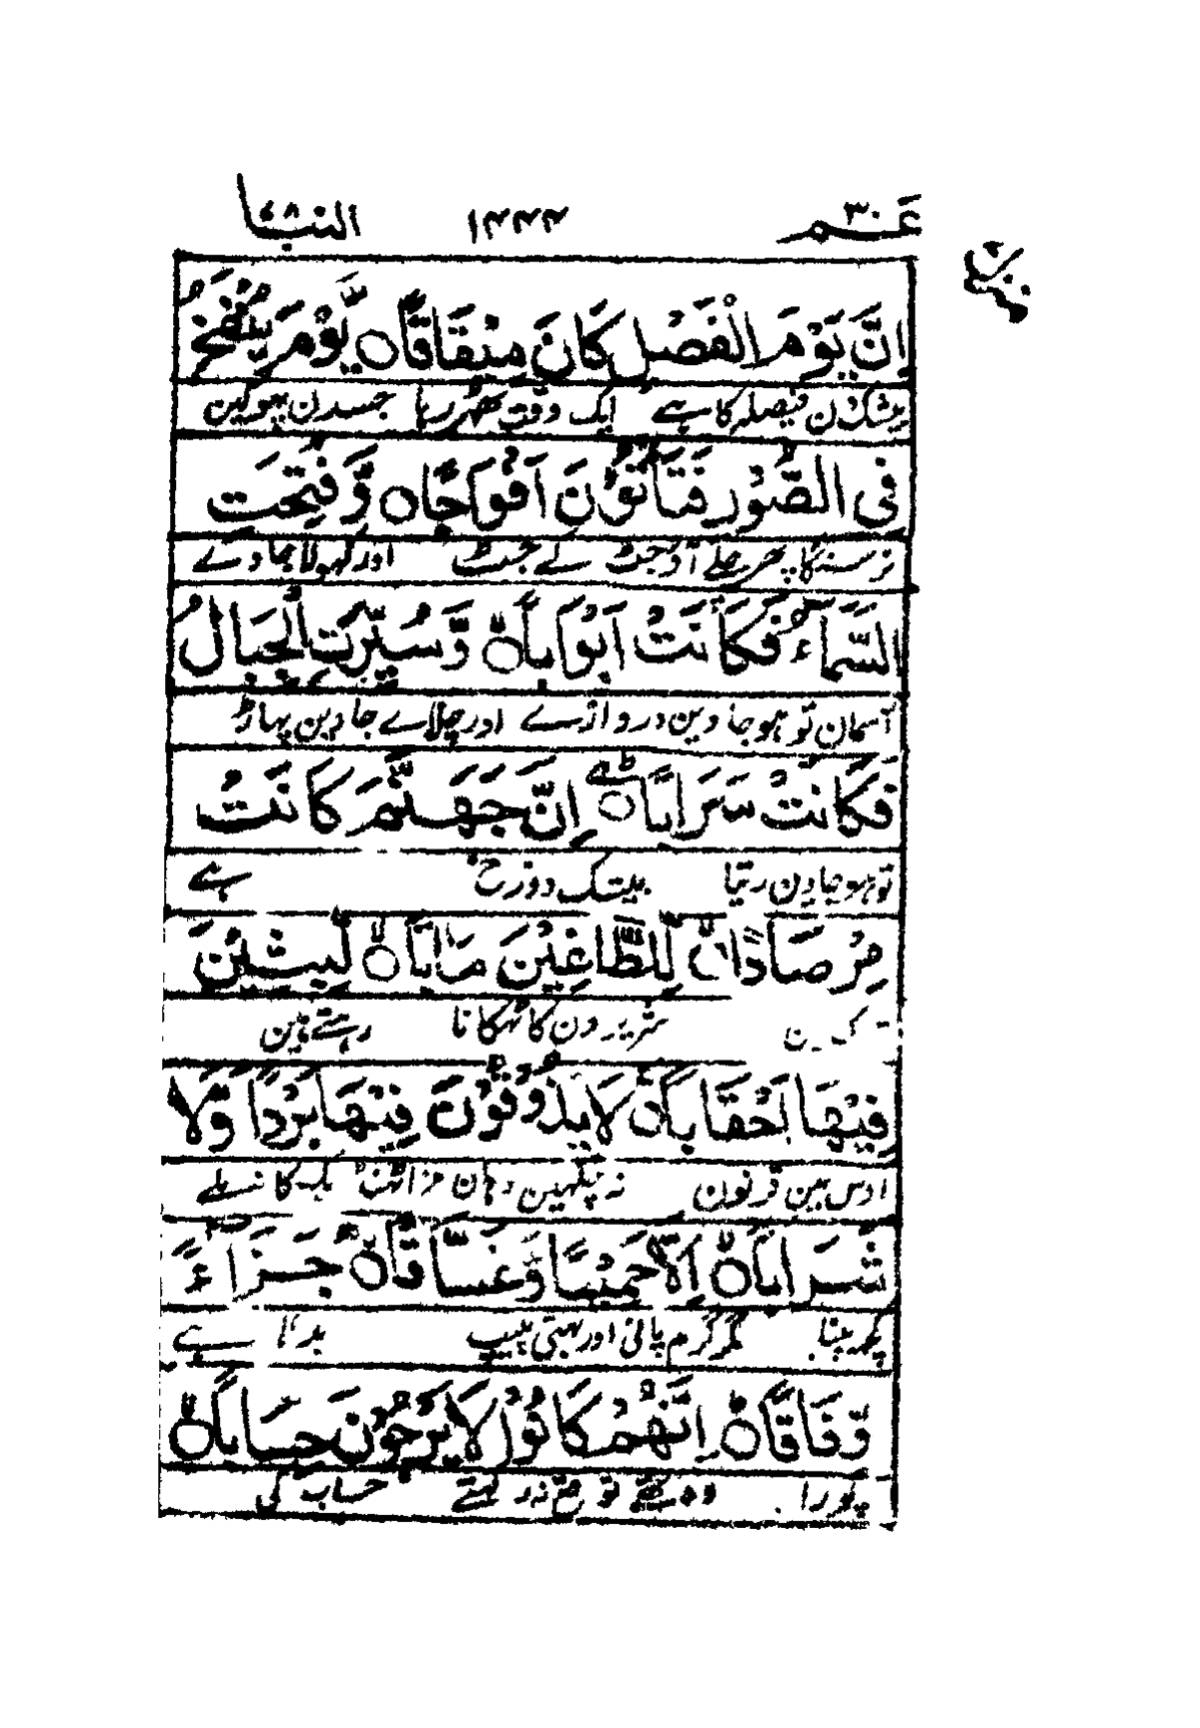 عَمَّ ٣٠ ١٢٤٤ النبأ ٧٨
اِنَّ يَوْمَ الْفَصْلِ كَانَ مِيْقَاتًا ۙ يَّوْمَ يُنْفَخُ
بیشک دن فیصلہ کا ہے ایک وقت ٹھہر رہا جسدن پھوکین
فِى الصُّوْرِ فَتَاْتُوْنَ اَفْوَاجًا ۙ وَّفُتِحَتِ
نرسنگا پھر چلے آؤ جٹ کے جٹ اور کھولا جاوے
السَّمَآءُ فَكَانَتْ اَبْوَابًا ۙ وَّسُيِّرَتِ الْجِبَالُ
آسمان تو ہو جاوین دروازے اور چلاے جاوین پہاڑ
فَكَانَتْ سَرَابًا ؕ اِنَّ جَهَنَّمَ كَانَتْ
تو ہو جاوین ریتا بیشک دوزخ ہے
مِرْصَادًا ۙ لِّلطَّاغِيْنَ مَاٰبًا ۙ لّٰبِثِيْنَ
شریرون کا ٹھکانا رہتے ہین
فِيْهَا اَحْقَابًا ۚ لَا يَذُوْقُوْنَ فِيْهَا بَرْدًا وَّلَا
اوس مین قرنون نہ چکھین وہان مزا ٹھنڈک کا نہ ملے
شَرَابًا ۙ اِلَّا حَمِيْمًا وَّغَسَّاقًا ۙ جَزَآءً
کچھ پینا مگر گرم پانی اور بہتی پیپ بدلا ہے
وِّفَاقًا ؕ اِنَّهُمْ كَانُوْا لَا يَرْجُوْنَ حِسَابًا ۙ
پورا وہ تھے توقع نہ رکھتے حساب کی